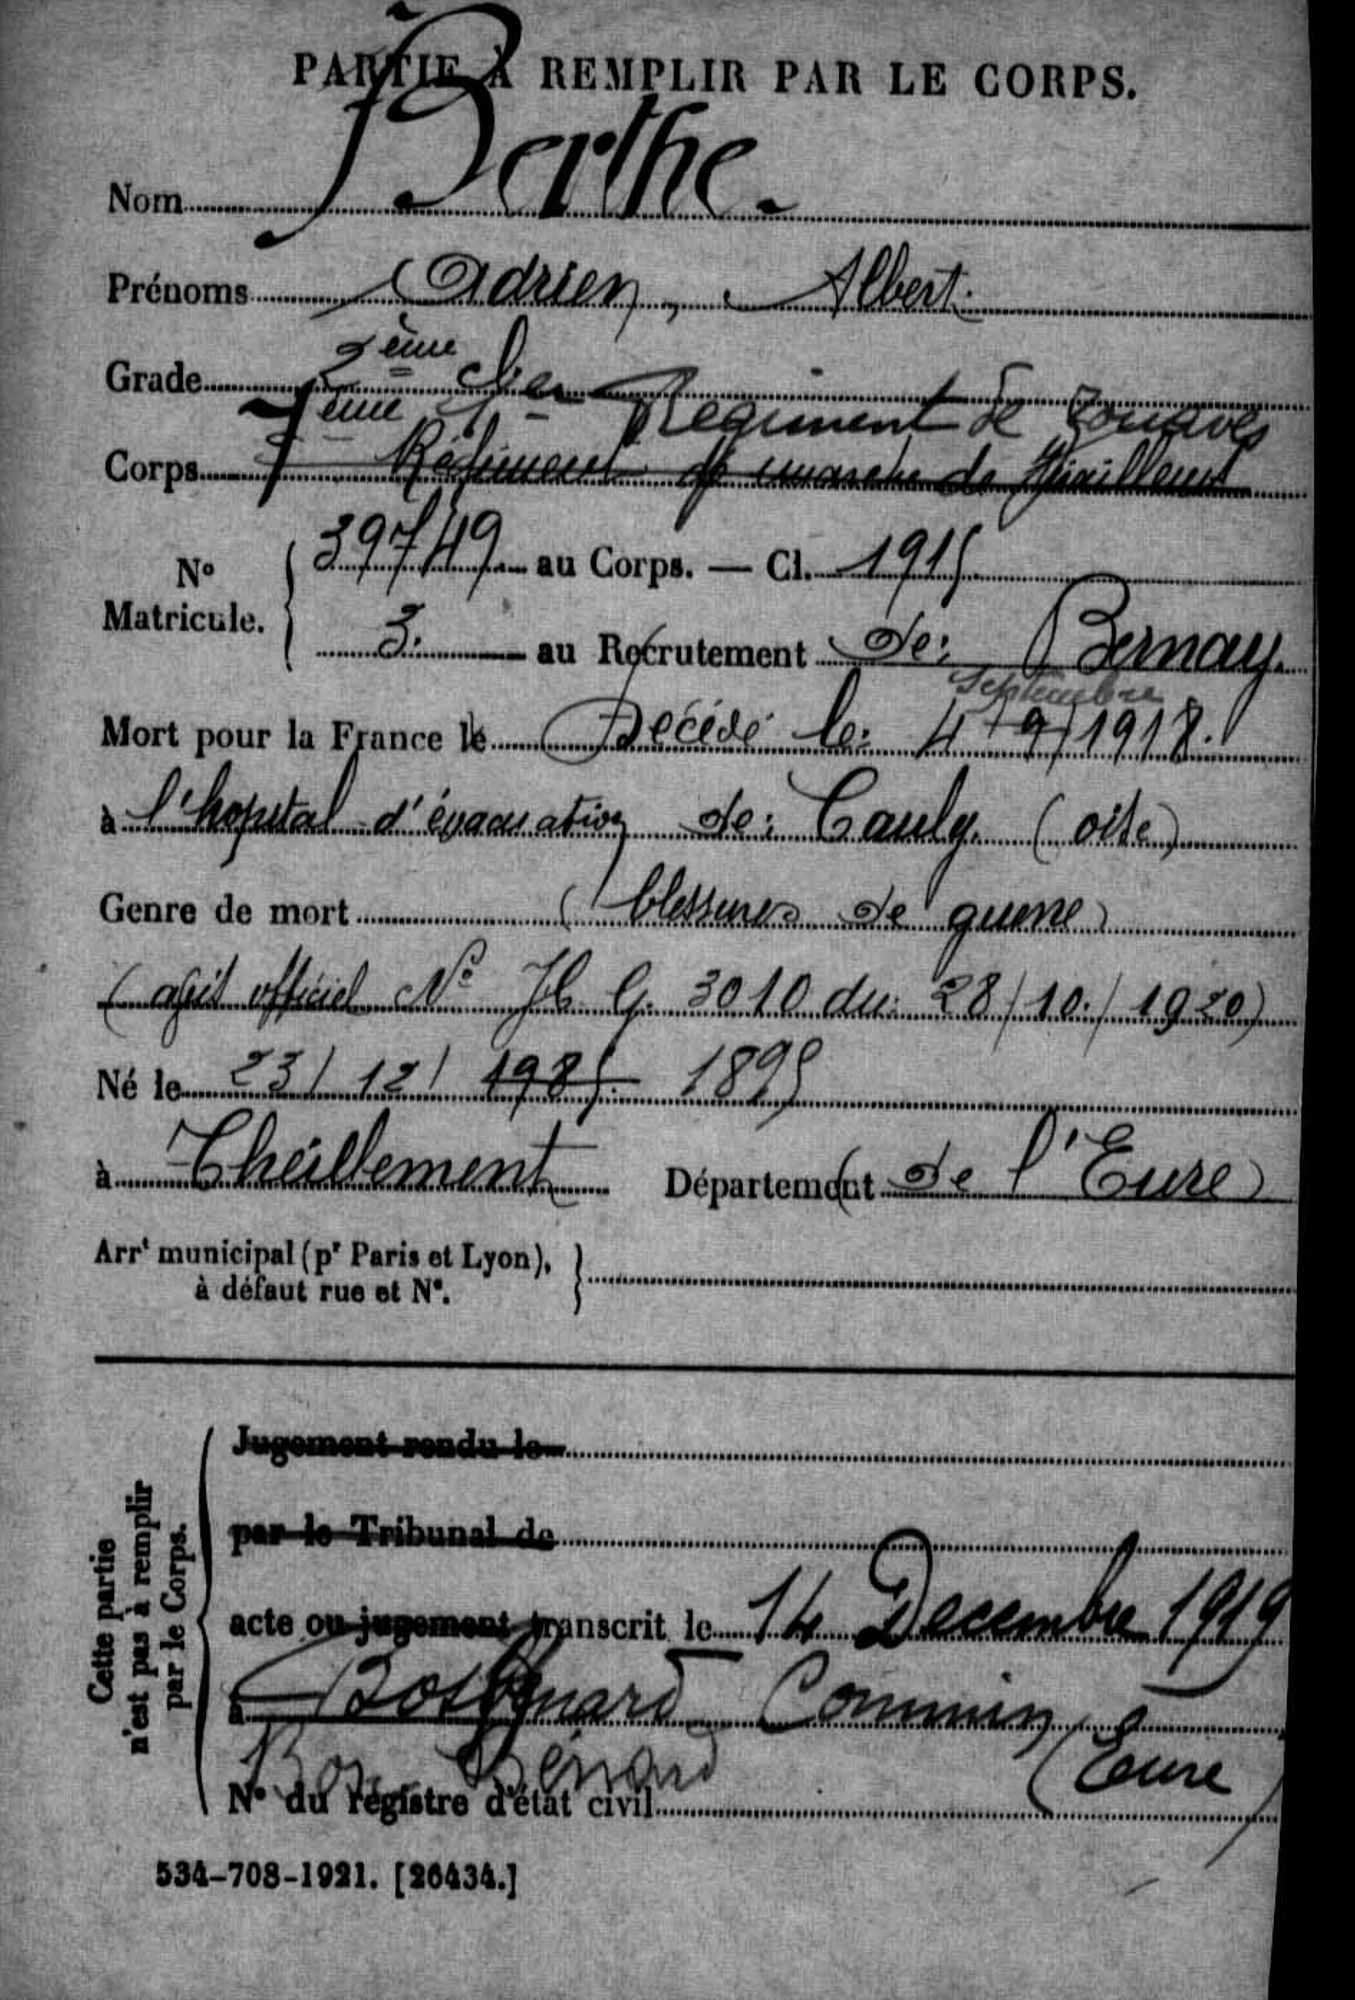 PARTIE À REMPLIR PAR LE CORPS.
Nom Berthe.
Prénoms Adrien, Albert.
Grade 2ème Cl.
7ème 1er Régiment de Zouaves
Corps Régiment de marche de Tirailleurs
N° Matricule. { 39749 au Corps. — Cl. 1915
3. au Recrutement de: Bernay.
Septembre
Mort pour la France le Décédé le: 4/9/1918.
à l'hopital d'évacuation de: Cauly. (oise)
Genre de mort (blessures de guerre)
officiel N° 3010 du: 28/10./1920)
Né le 23/12/ 1985. 1895
à Theillement Département de l'Eure
Arrt municipal (pr Paris et Lyon), à défaut rue et N°. }
Cette partie n'est pas à remplir par le Corps.
Jugement rendu le
par le Tribunal de
acte ou jugement transcrit le 14 Decembre 1919
à Bosbénard Commin
Bosc Bénard (Eure)
N° du registre d'état civil
534-708-1921. [26434.]